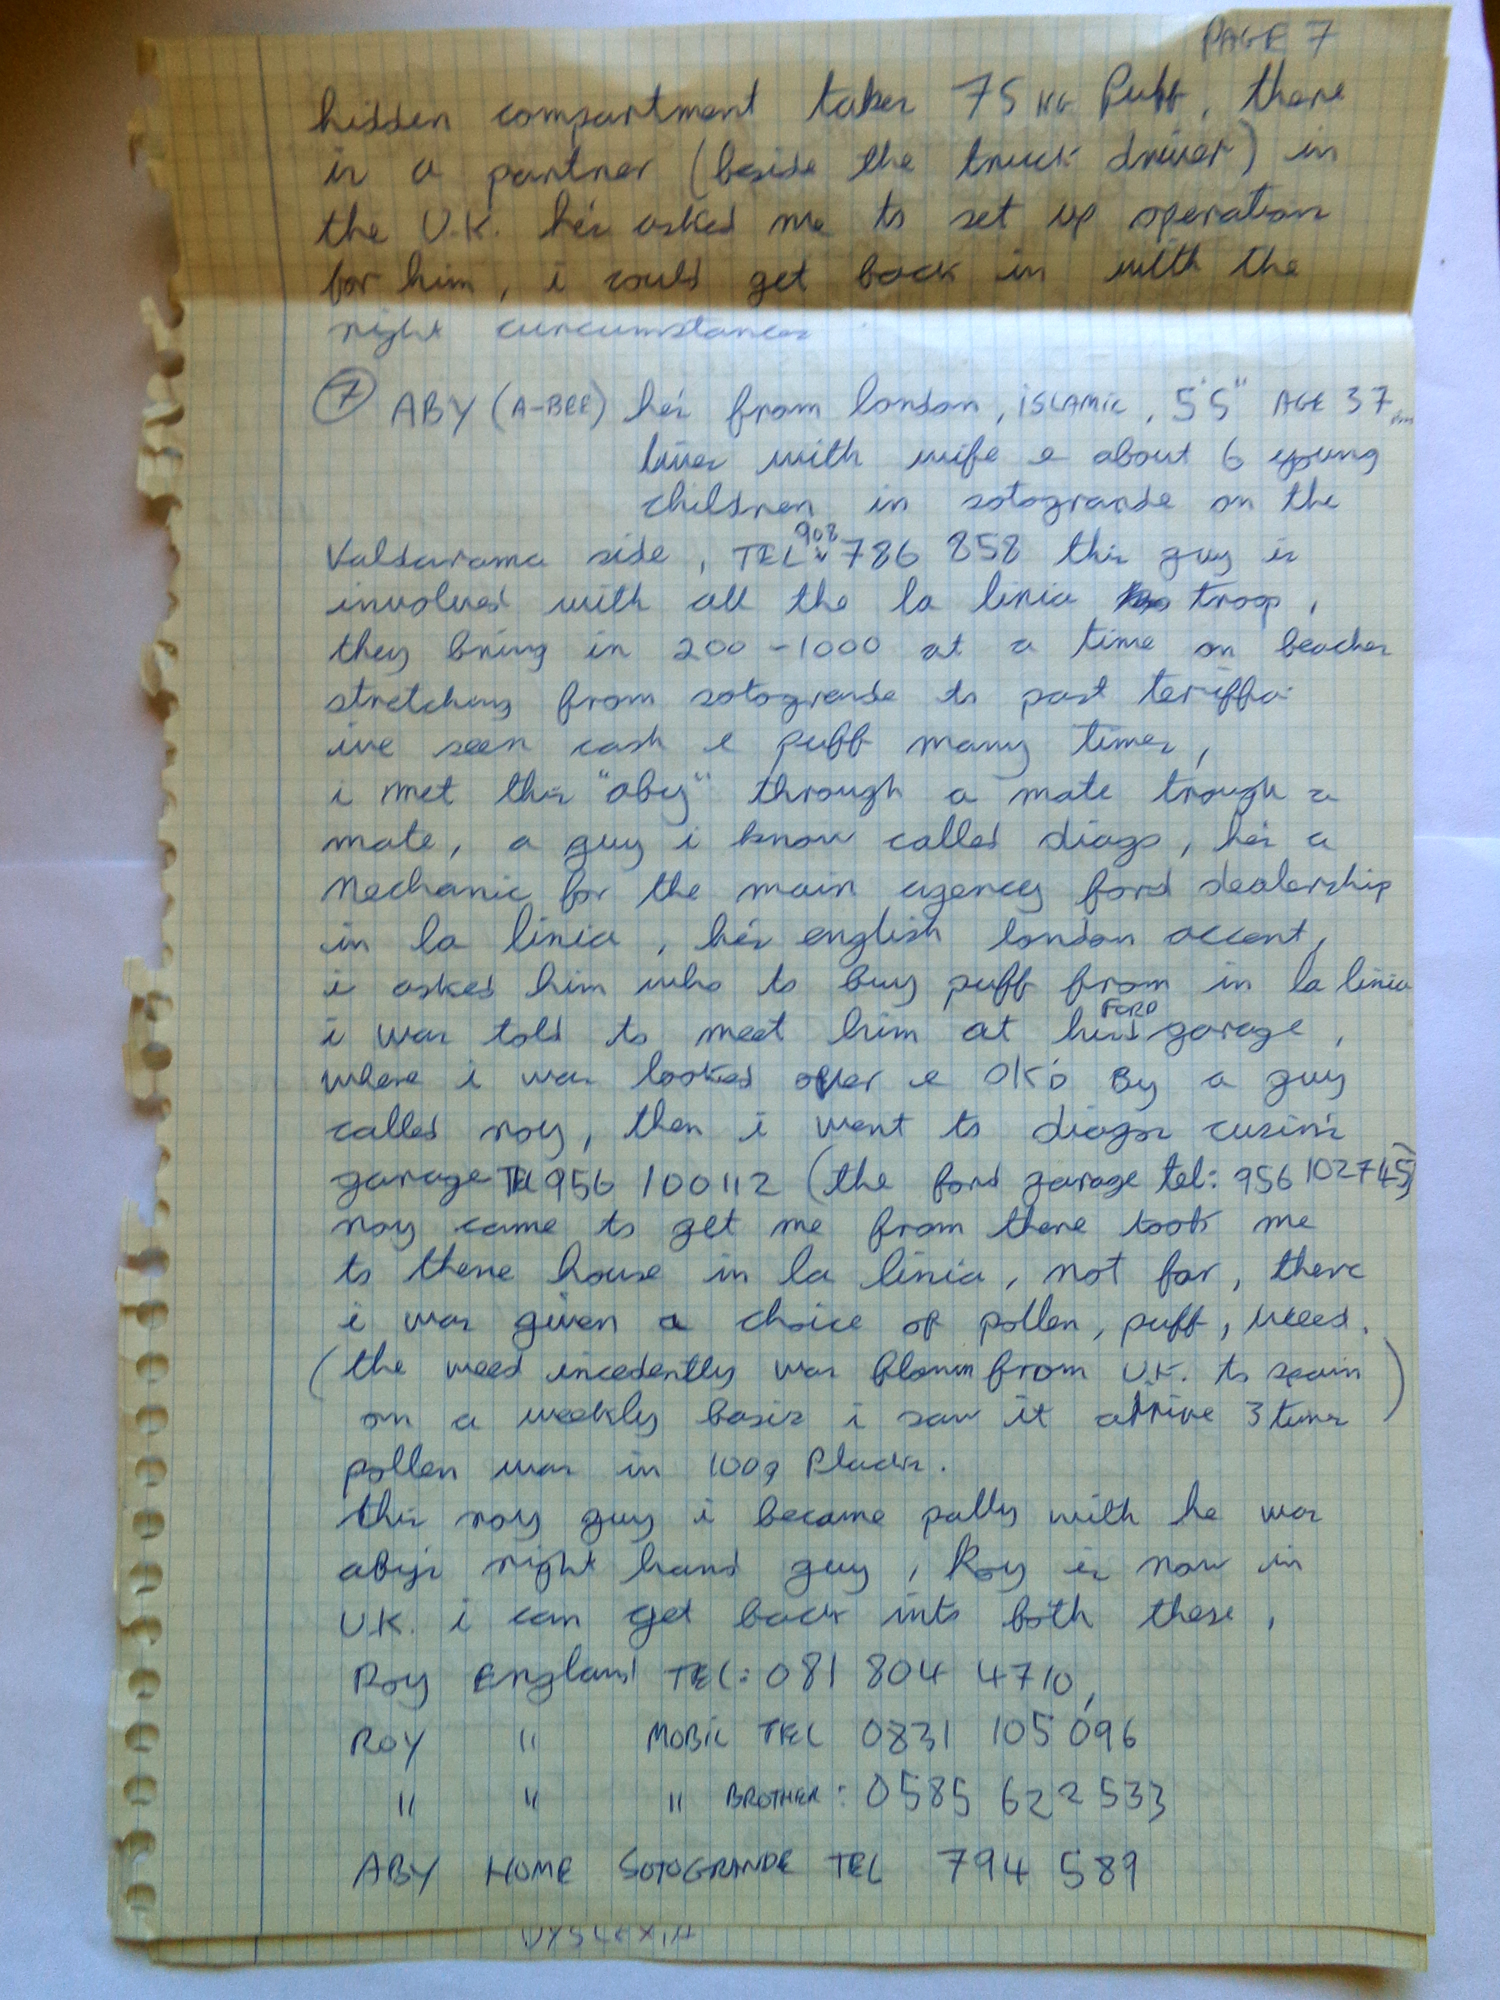 PAGE 7
hidden compartment takes 75 KG Puff, there
is a partner (beside the truck driver) in
the U.K. he's asked me to set up operation
for him, i could get back in with the
right curcumstances
⑦ ABY (A-BEE) he's from london, ISLAMIC, 5'5" AGE 37
lives with wife e about 6 young
children in sotogrande on the
Valdarama side, TEL: 908 786 858 this guy is
involved with all the la linia troop,
they bring in 200 - 1000 at a time on beaches
stretching from sotogrande to past teriffa.
ive seen cash e puff many times,
i met this "aby" through a mate trough a
mate, a guy i know called diago, he's a
mechanic for the main agency ford dealership
in la linia, he's english london accent,
i asked him who to buy puff from in la linia
i was told to meet him at his FORD garage,
where i was looked over e OK'd By a guy
called roy, then i went to diagos cusins
garage TEL 956 100112 (the ford garage tel: 956 102745)
roy came to get me from there took me
to there house in la linia, not far, there
i was given a choice of pollen, puff, weed.
(the weed incedently was flown from U.K. to spain
on a weekly basis i saw it arrive 3 times)
pollen was in 100g Placks.
this roy guy i became pally with he was
aby's right hand guy, Roy is now in
U.K. i can get back into both these,
Roy England TEL: 081 804 4710,
ROY " MOBIL TEL 0831 105 096
" " " BROTHER: 0585 622 533
ABY HOME SOTOGRANDE TEL 794 589
DYSLEXIA